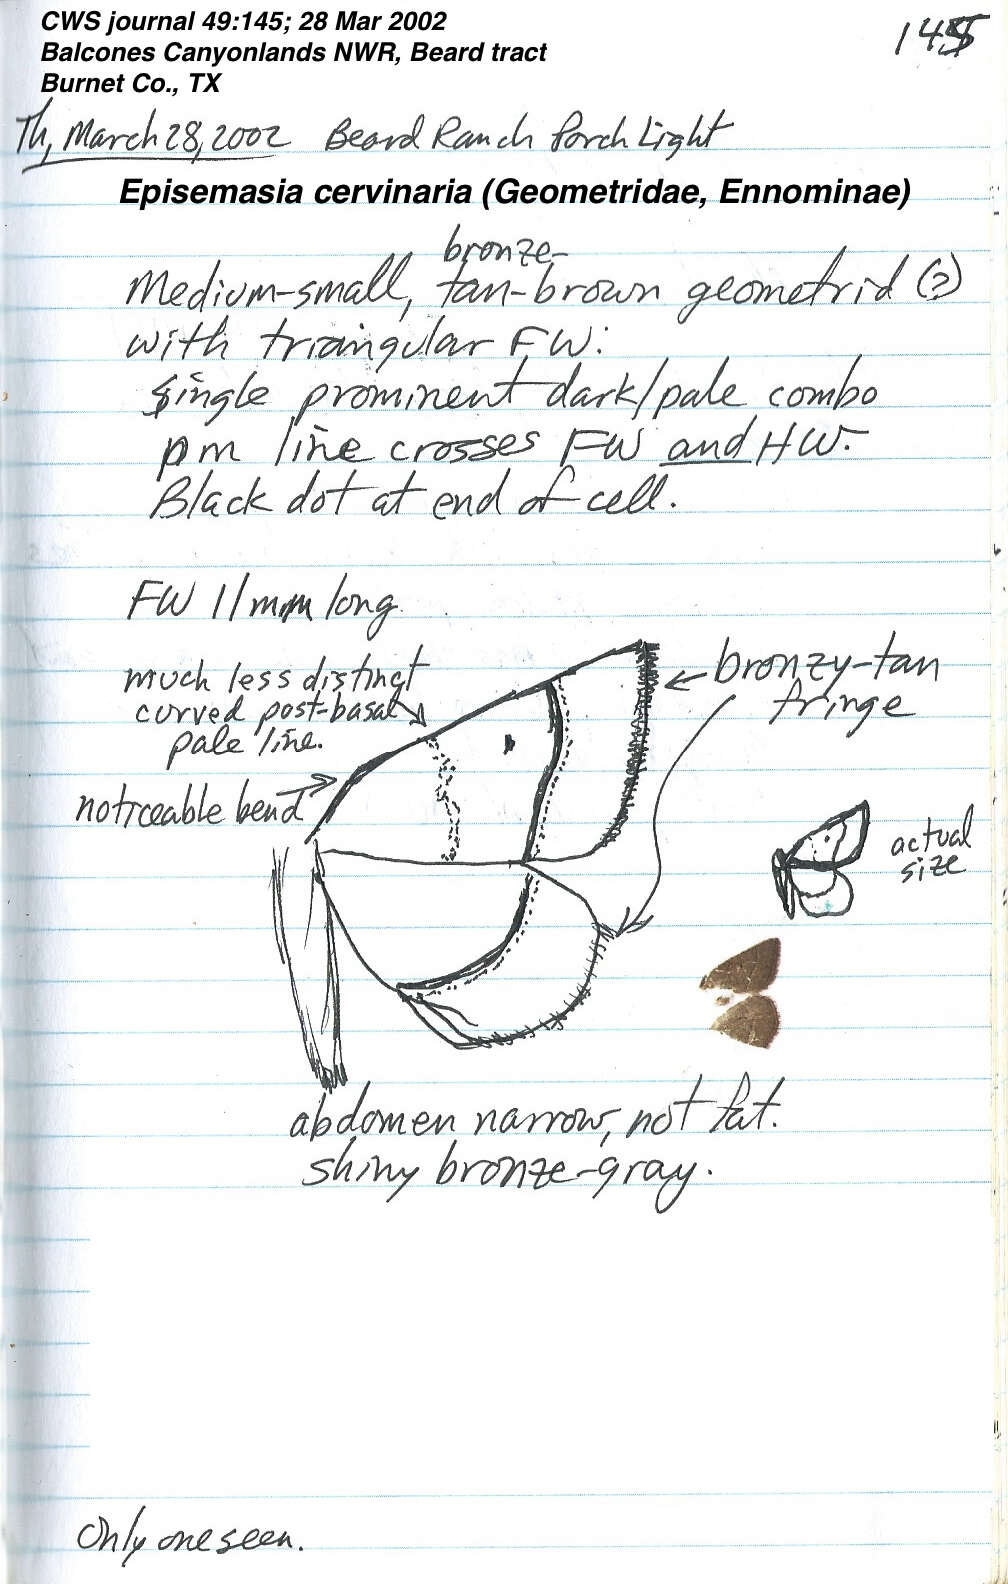 CWS journal 49:145; 28 Mar 2002
Balcones Canyonlands NWR, Beard tract
Burnet Co., TX
145
Th, March 28, 2002 Beard Ranch Porch Light
Episemasia cervinaria (Geometridae, Ennominae)
bronze-
Medium-small, tan-brown geometrid (?)
with triangular FW:
single prominent dark/pale combo
pm line crosses FW and HW.
Black dot at end of cell.
FW 11 mm long
much less distinct
curved post-basal
pale line.
bronzy-tan
fringe
noticeable bend
actual
size
abdomen narrow, not fat.
shiny bronze-gray.
Only one seen.